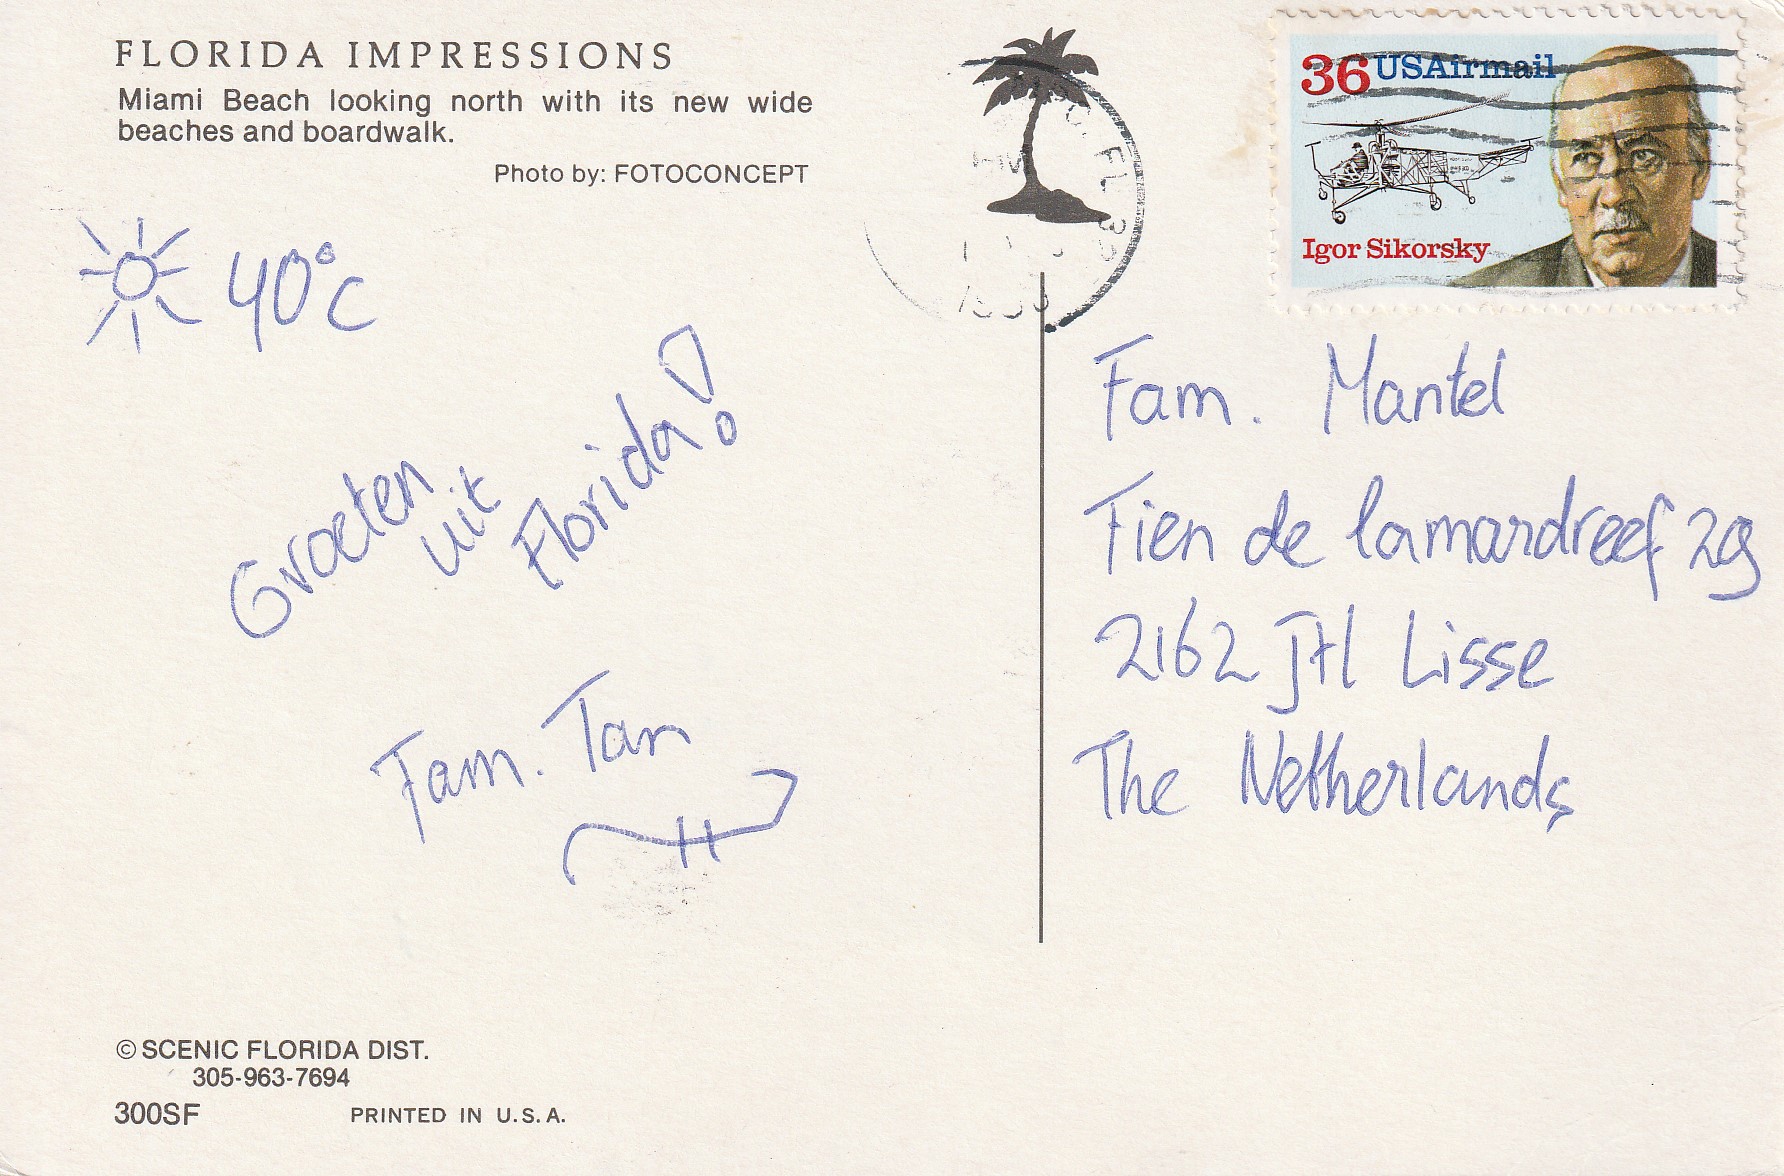 FLORIDA IMPRESSIONS
Miami Beach looking north with its new wide
beaches and boardwalk.
Photo by: FOTOCONCEPT
40°C
Groeten
uit
Florida!
Fam. Tan
© SCENIC FLORIDA DIST.
305-963-7694
300SF PRINTED IN U.S.A.
FL
36 USAirmail
Igor Sikorsky
Fam. Mantel
Fien de lamardreef 29
2162 JH Lisse
The Netherlands